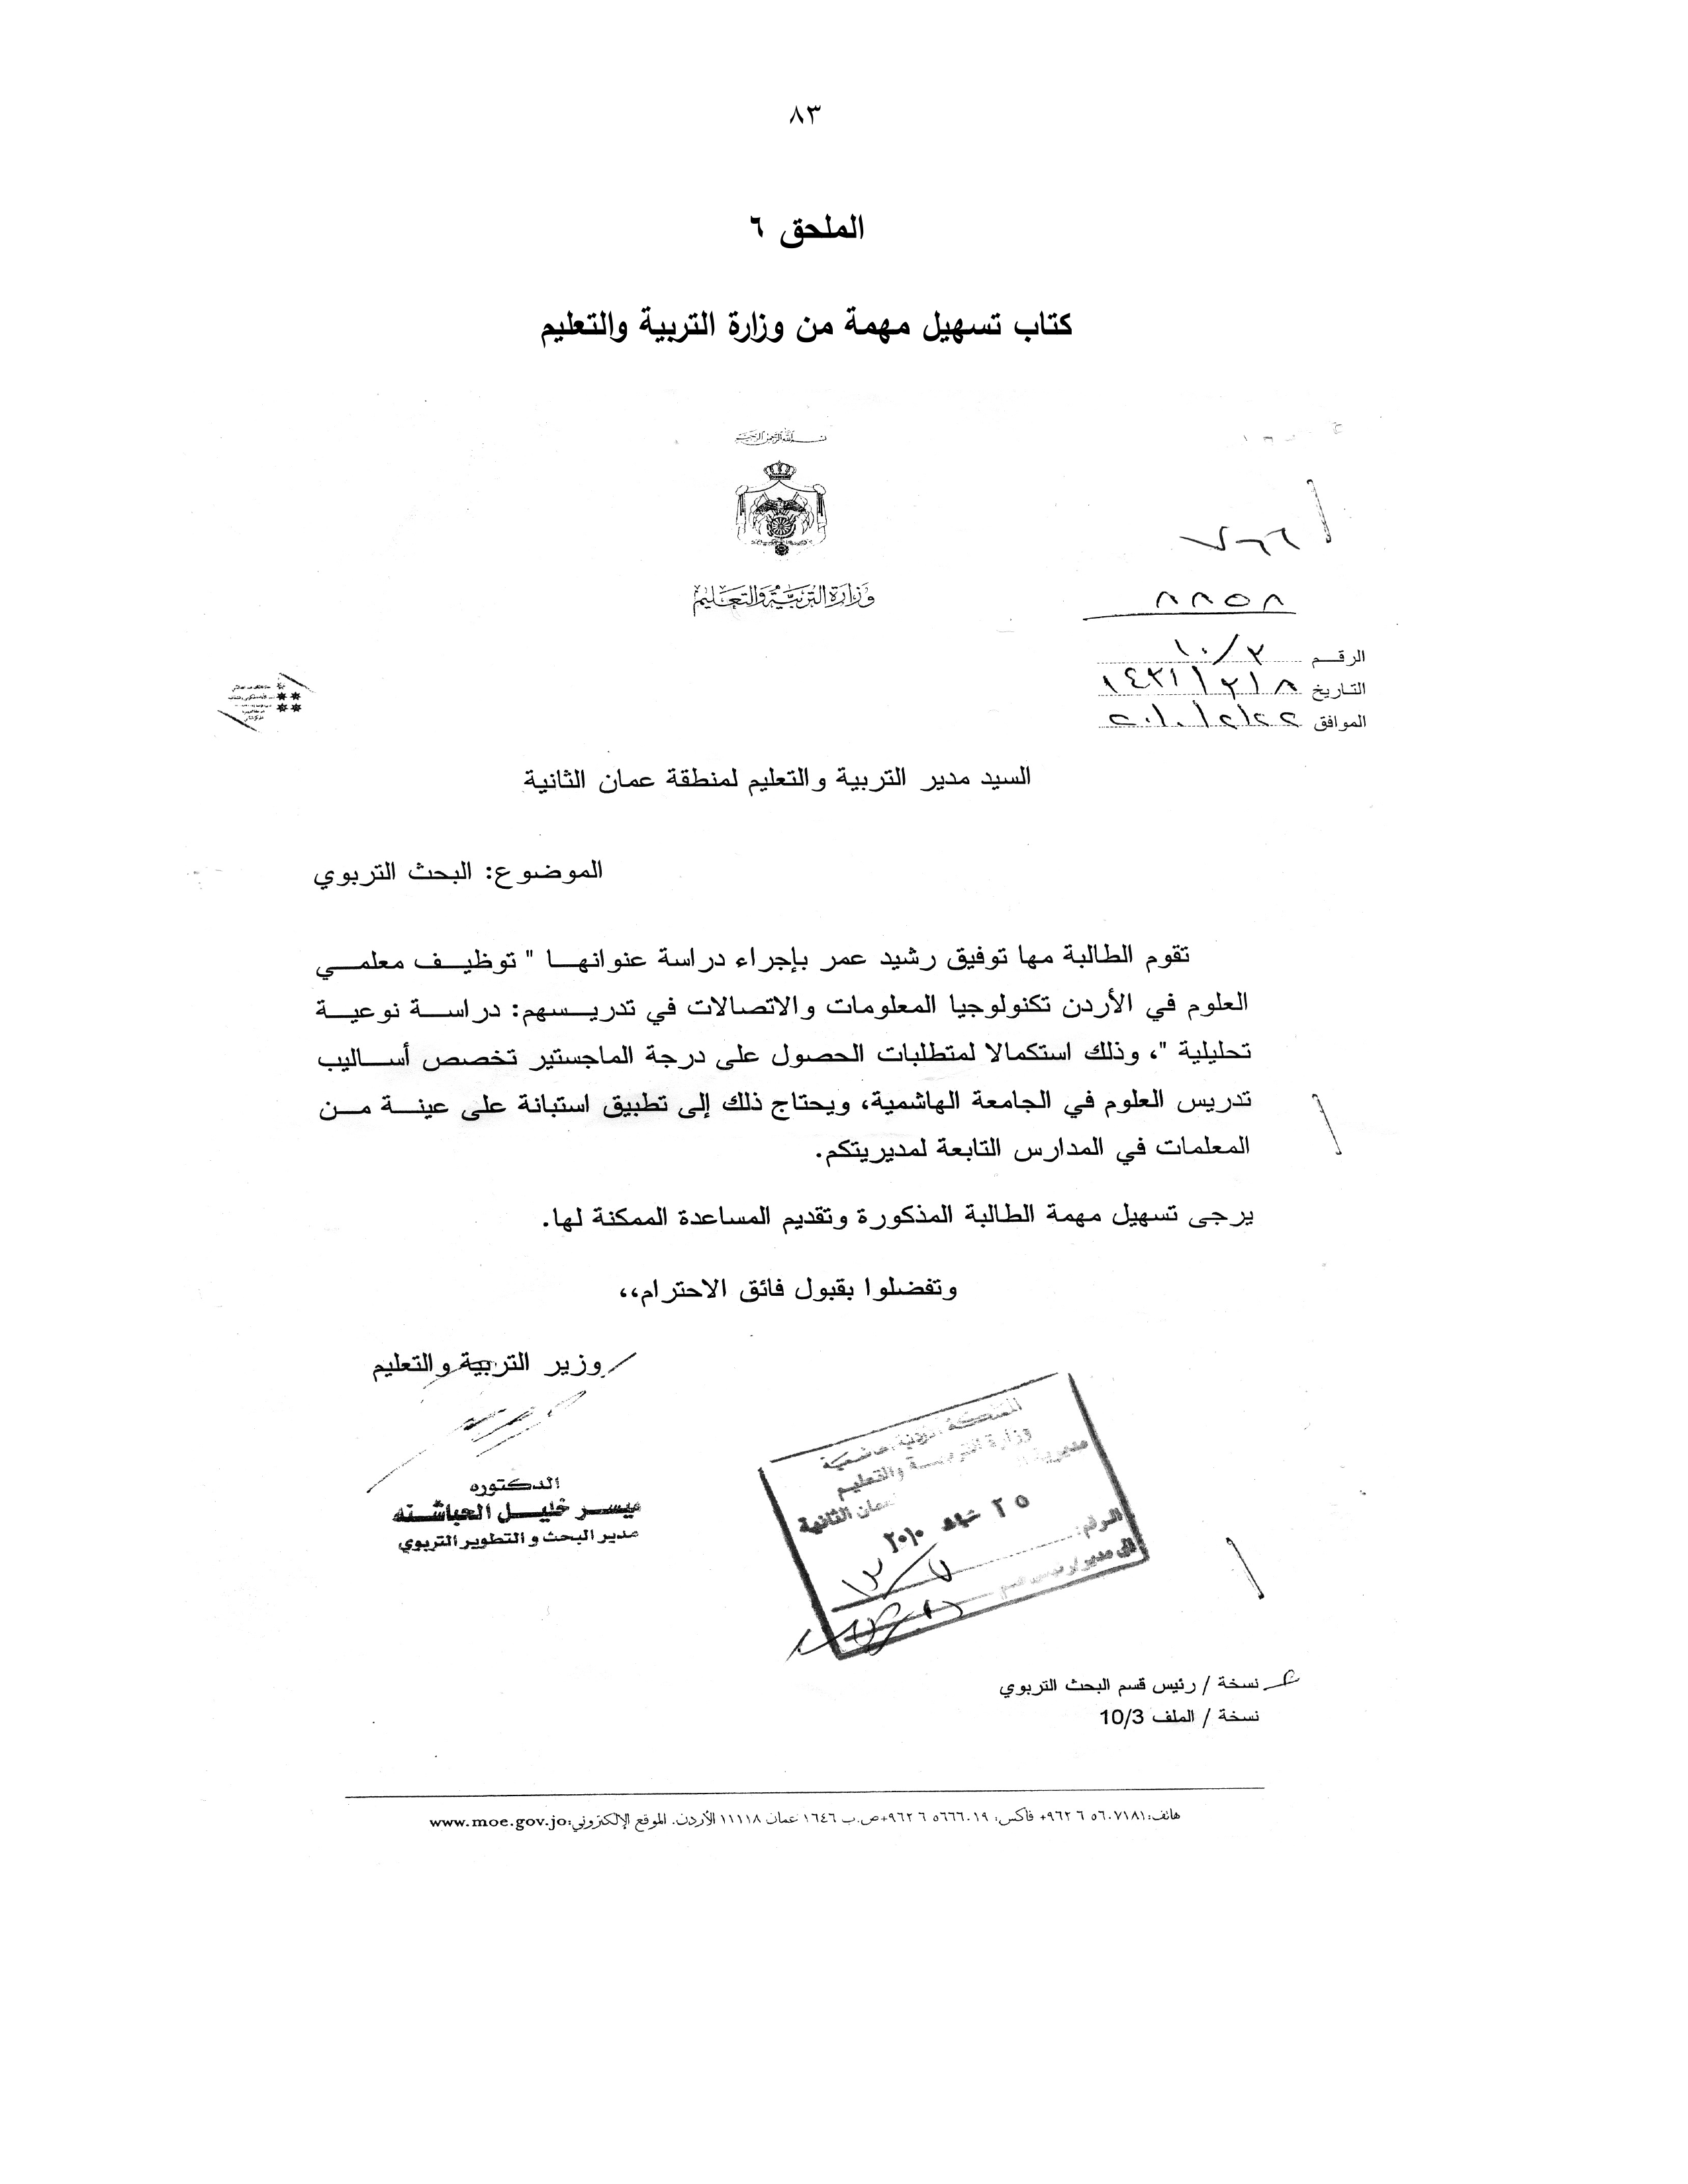 ٨٣
الملحق ٦
كتاب تسهيل مهمة من وزارة التربية والتعليم
بسم الله الرحمن الرحيم
وزارة التربية والتعليم
٧٦٦
٨٨٥٨
الرقم ١٠/٣
التاريخ ١٤٣١/٣/٨
الموافق ٢٠١٠/٢/٢٢
السيد مدير التربية والتعليم لمنطقة عمان الثانية
الموضوع: البحث التربوي
تقوم الطالبة مها توفيق رشيد عمر بإجراء دراسة عنوانها " توظيف معلمي
العلوم في الأردن تكنولوجيا المعلومات والاتصالات في تدريسهم: دراسة نوعية
تحليلية "، وذلك استكمالا لمتطلبات الحصول على درجة الماجستير تخصص أساليب
تدريس العلوم في الجامعة الهاشمية، ويحتاج ذلك إلى تطبيق استبانة على عينة من
المعلمات في المدارس التابعة لمديريتكم.
يرجى تسهيل مهمة الطالبة المذكورة وتقديم المساعدة الممكنة لها.
وتفضلوا بقبول فائق الاحترام،،
وزير التربية والتعليم
الدكتوره
ميسر خليل الحباشنه
مدير البحث و التطوير التربوي
المملكة الاردنية الهاشمية
وزارة التربية والتعليم
مديرية عمان الثانية
٢٥ شباط ٢٠١٠
الرقم:
نسخة / رئيس قسم البحث التربوي
نسخة / الملف 10/3
هاتف: ٥٦٠٧١٨١ ٦ ٩٦٢+ فاكس: ٥٦٦٦٠١٩ ٦ ٩٦٢+ ص.ب ١٦٤٦ عمان ١١١١٨ الأردن. الموقع الإلكتروني: www.moe.gov.jo